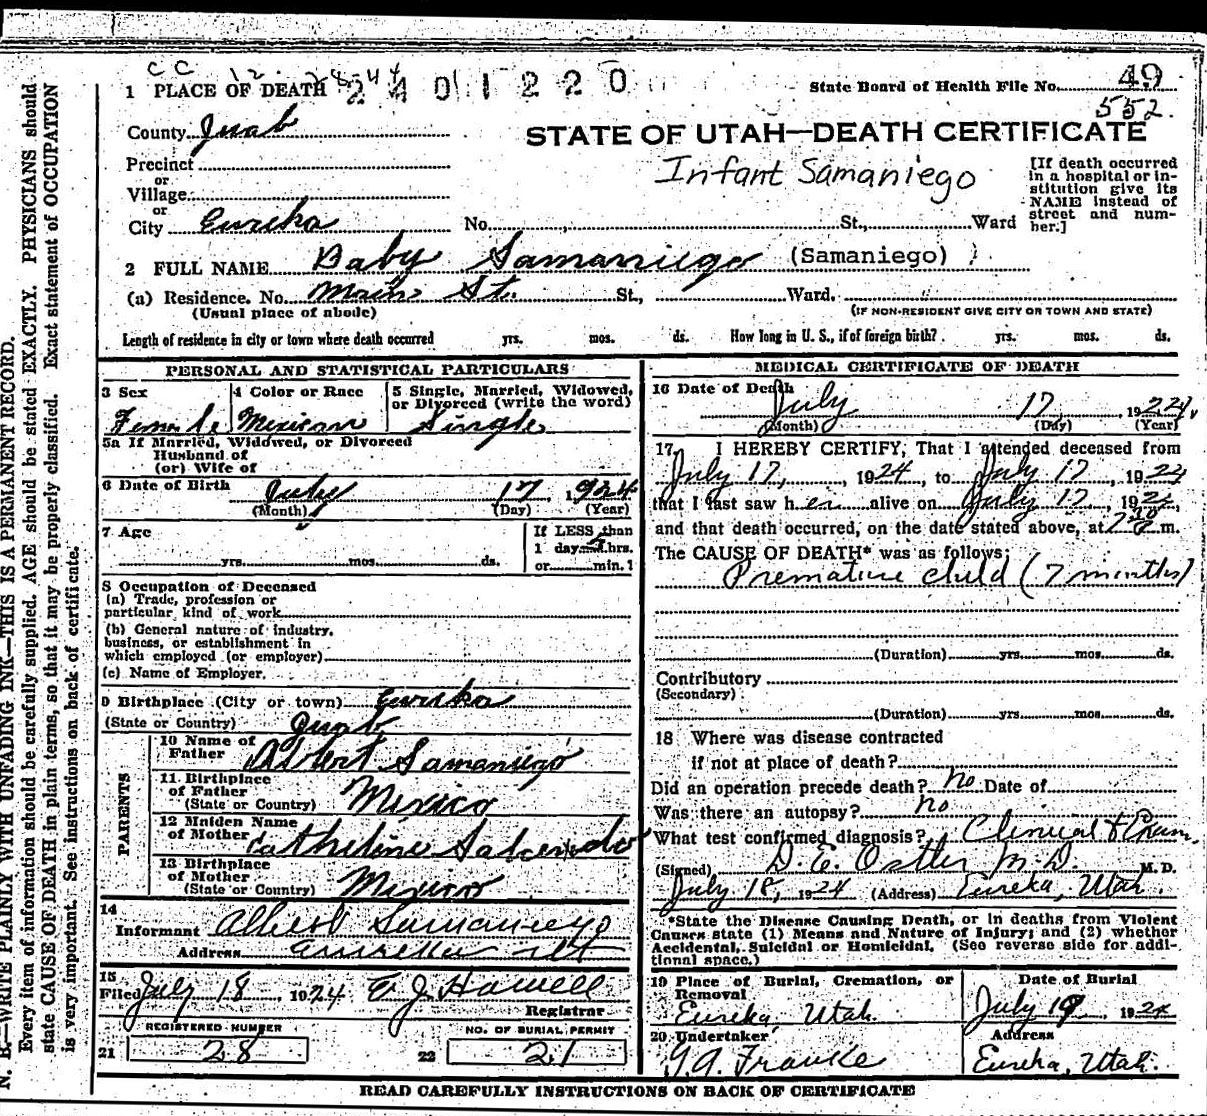 C C 12
1 PLACE OF DEATH 2 4 0 1 2 2 0
State Board of Health File No. 49
552.
County Juab
STATE OF UTAH—DEATH CERTIFICATE
Infant Samaniego
Precinct
or
Village
or
City Eureka
No. St., Ward
[If death occurred
in a hospital or in-
stitution give its
NAME instead of
street and num-
ber.]
2 FULL NAME Baby Samaniego (Samaniego)
(a) Residence. No. Main St. St., Ward.
(Usual place of abode)
(IF NON-RESIDENT GIVE CITY OR TOWN AND STATE)
Length of residence in city or town where death occurred yrs. mos. ds. How long in U. S., if of foreign birth? yrs. mos. ds.
PERSONAL AND STATISTICAL PARTICULARS
3 Sex
Female
4 Color or Race
Mexican
5 Single, Married, Widowed,
or Divorced (write the word)
Single
5a If Married, Widowed, or Divorced
Husband of
(or) Wife of
6 Date of Birth July 17, 1924
(Month) (Day) (Year)
7 Age
yrs. mos. ds.
If LESS than
1 day hrs.
or min.?
8 Occupation of Deceased
(a) Trade, profession or
particular kind of work
(b) General nature of industry,
business, or establishment in
which employed (or employer)
(c) Name of Employer.
9 Birthplace (City or town) Eureka
(State or Country) Juab
PARENTS
10 Name of
Father Albert Samaniego
11 Birthplace
of Father
(State or Country) Mexico
12 Maiden Name
of Mother Catherine
13 Birthplace
of Mother
(State or Country) Mexico
14
Informant Albert Samaniego
Address Eureka Ut
15
Filed July 18, 1924 E J Howell
Registrar
REGISTERED NUMBER
21 28
NO. OF BURIAL PERMIT
22 21
MEDICAL CERTIFICATE OF DEATH
16 Date of Death
July 17, 1924.
(Month) (Day) (Year)
17 I HEREBY CERTIFY, That I attended deceased from
July 17, 1924, to July 17, 1924
that I last saw her alive on July 17, 1924,
and that death occurred, on the date stated above, at m.
The CAUSE OF DEATH* was as follows:
Premature child (7 months)
(Duration) yrs. mos. ds.
Contributory
(Secondary)
(Duration) yrs. mos. ds.
18 Where was disease contracted
if not at place of death?
Did an operation precede death? No Date of
Was there an autopsy? no
What test confirmed diagnosis? Clinical & Exam.
(Signed) D. E. Ostler M.D. M. D.
July 18, 1924 (Address) Eureka, Utah.
*State the Disease Causing Death, or in deaths from Violent
Causes state (1) Means and Nature of Injury; and (2) whether
Accidental, Suicidal or Homicidal. (See reverse side for addi-
tional space.)
19 Place of Burial, Cremation, or
Removal
Eureka, Utah.
Date of Burial
July 19 1924
20 Undertaker
Address
Eureka, Utah.
READ CAREFULLY INSTRUCTIONS ON BACK OF CERTIFICATE
N. B.—WRITE PLAINLY WITH UNFADING INK—THIS IS A PERMANENT RECORD.
Every item of information should be carefully supplied. AGE should be stated EXACTLY. PHYSICIANS should
state CAUSE OF DEATH in plain terms, so that it may be properly classified. Exact statement of OCCUPATION
is very important. See instructions on back of certificate.